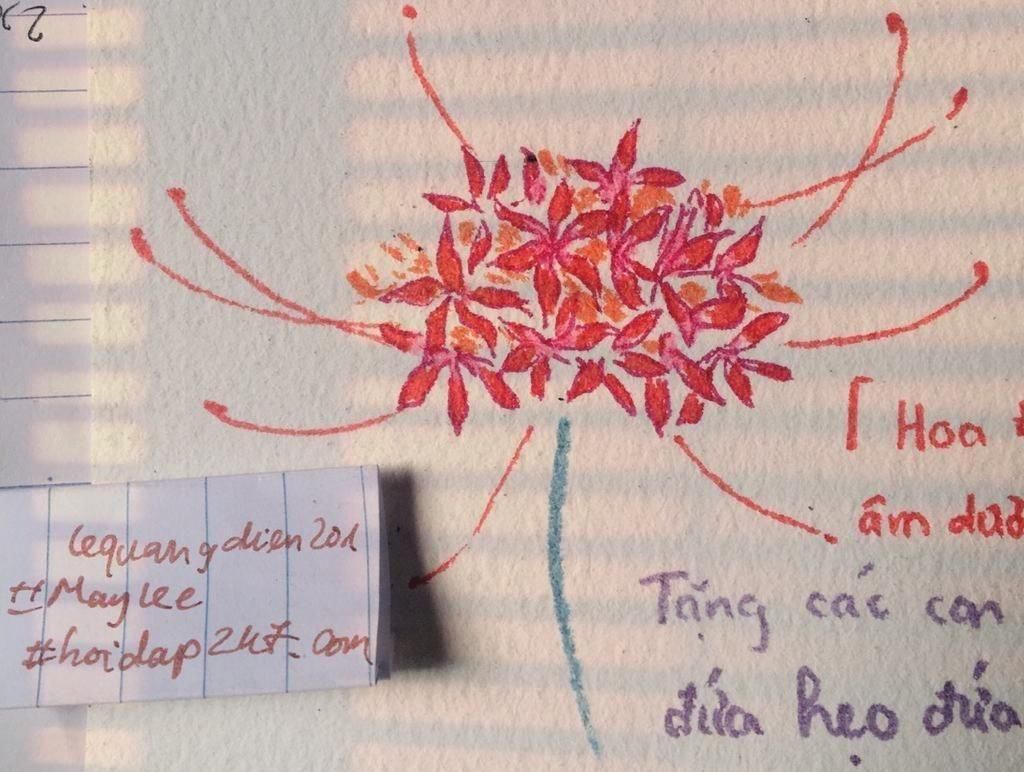 lequangdien201
#MayLee
#hoidap247.com
「Hoa
âm dươ
Tặng các con
đứa hẹo đứa